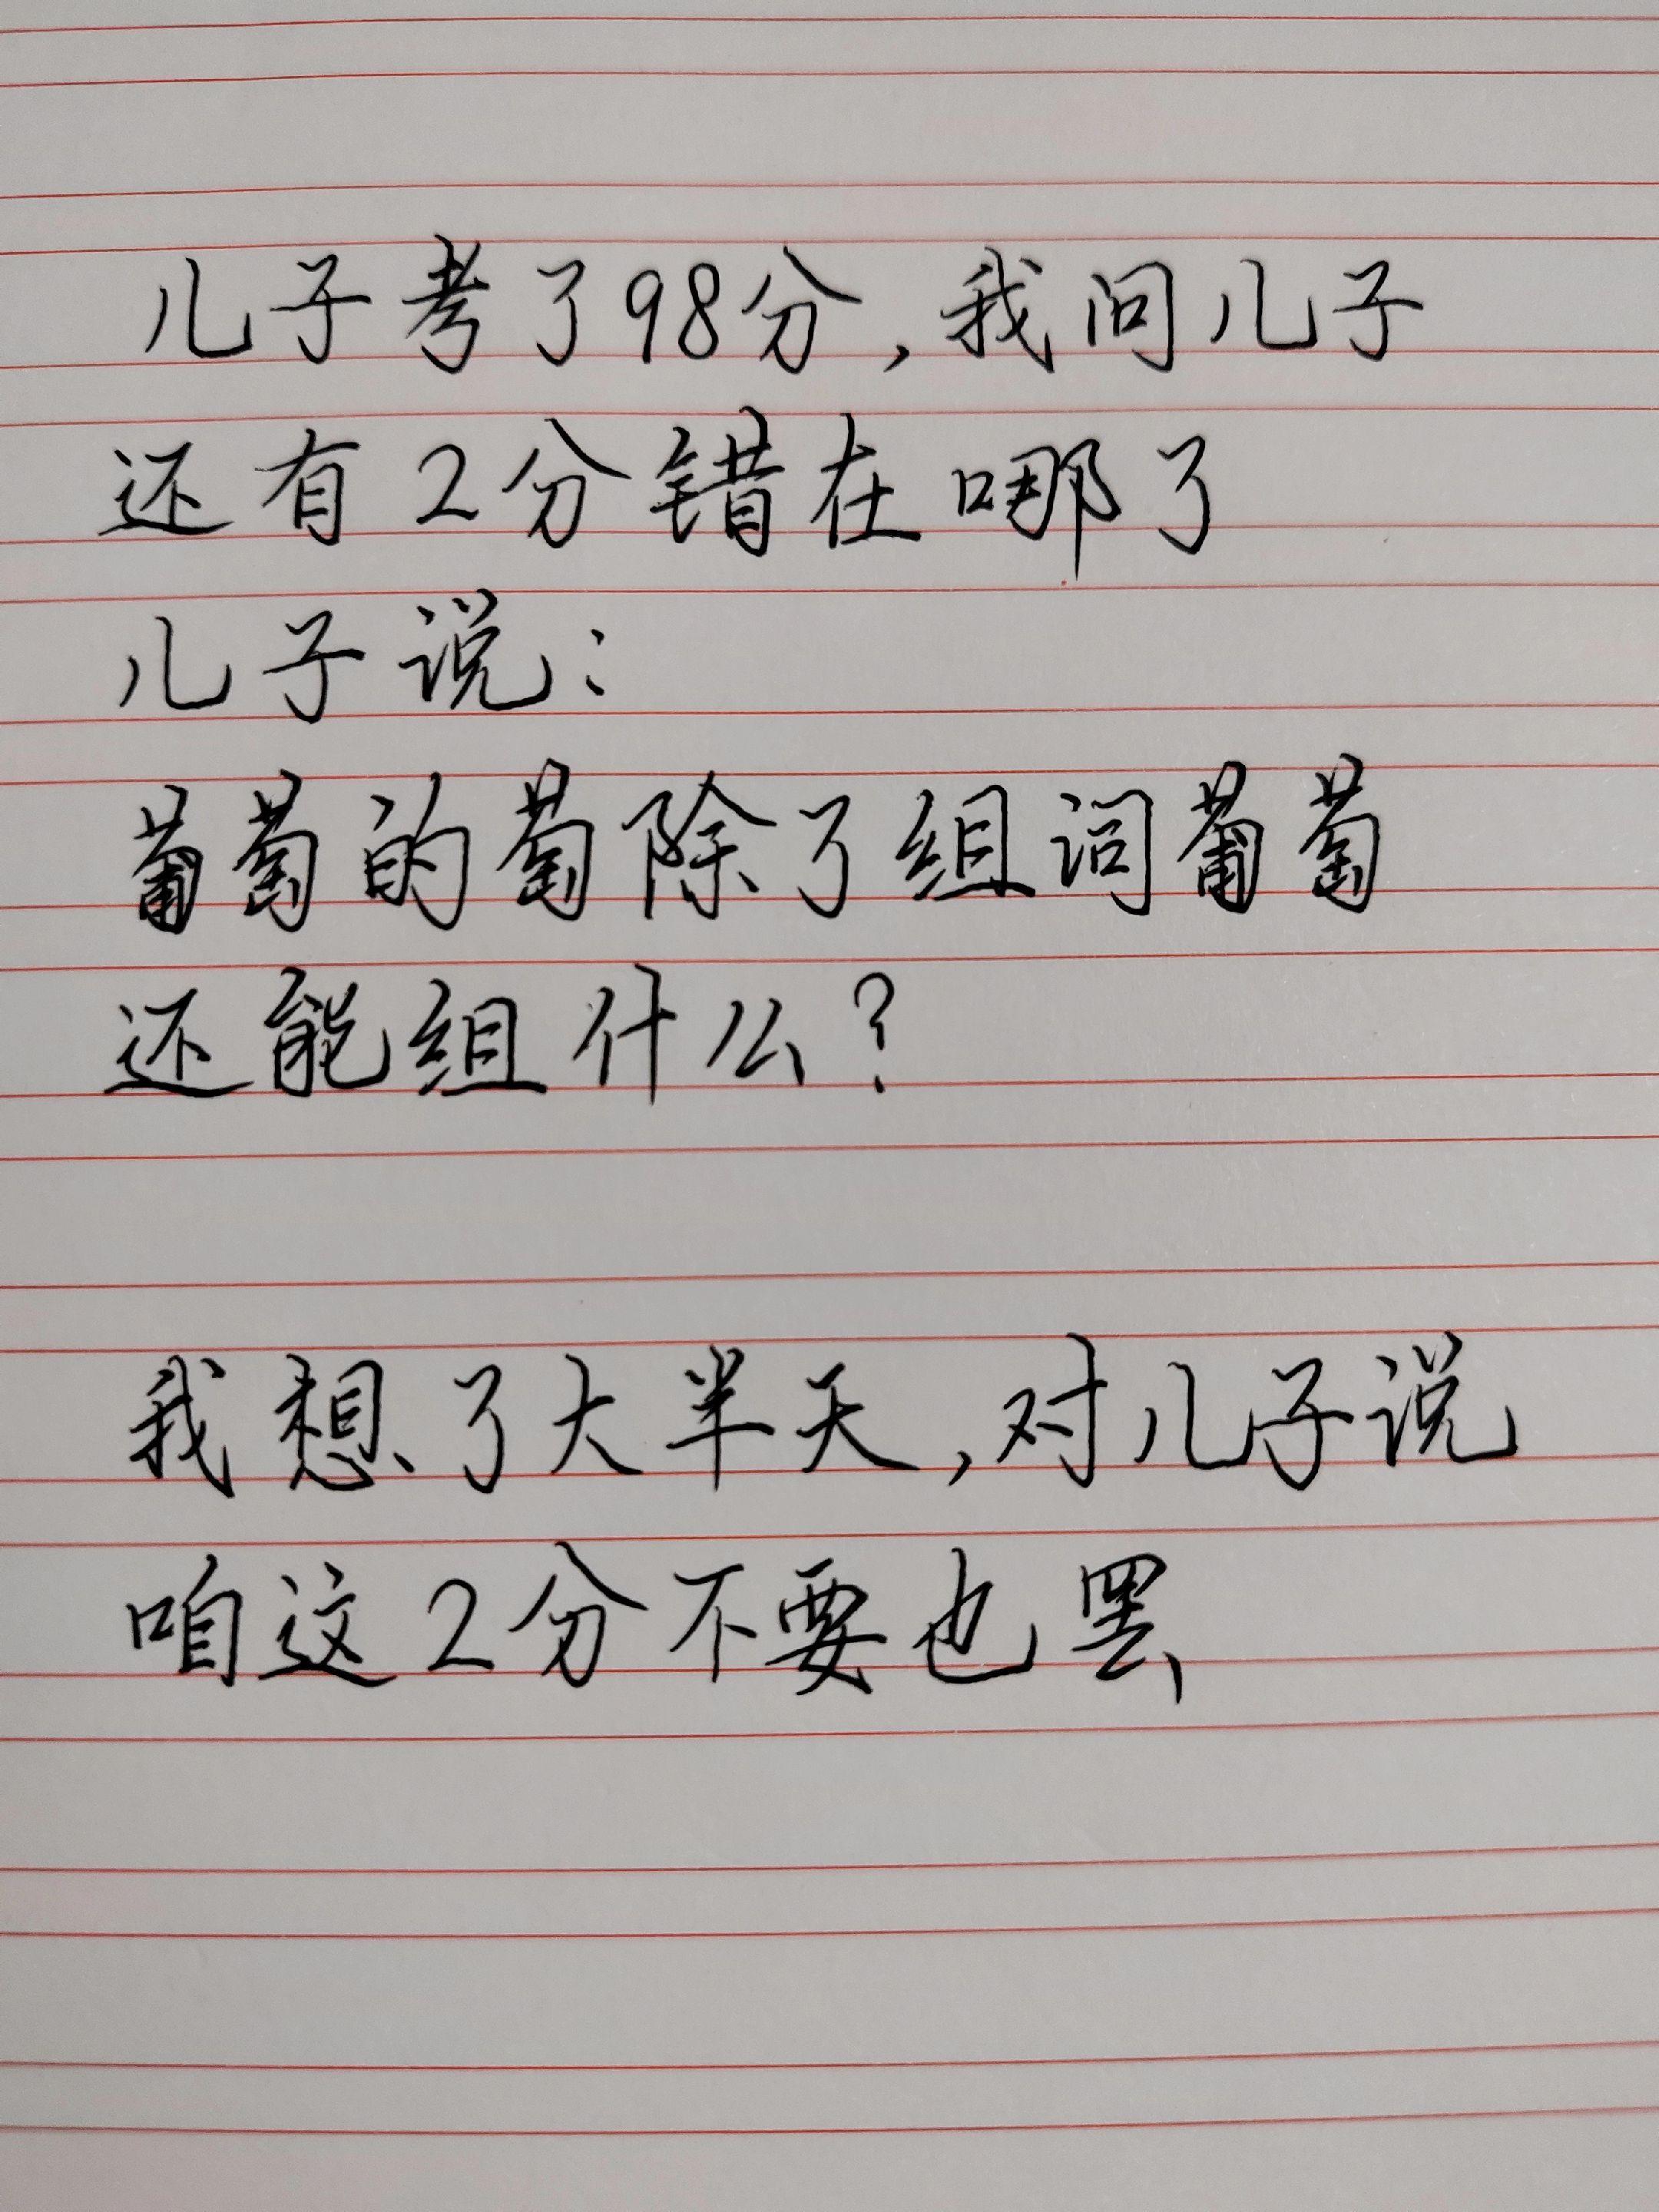 儿子考了98分,我问儿子
还有2分错在哪了
儿子说:
葡萄的萄除了组词葡萄
还能组什么?
我想了大半天,对儿子说
咱这2分不要也罢